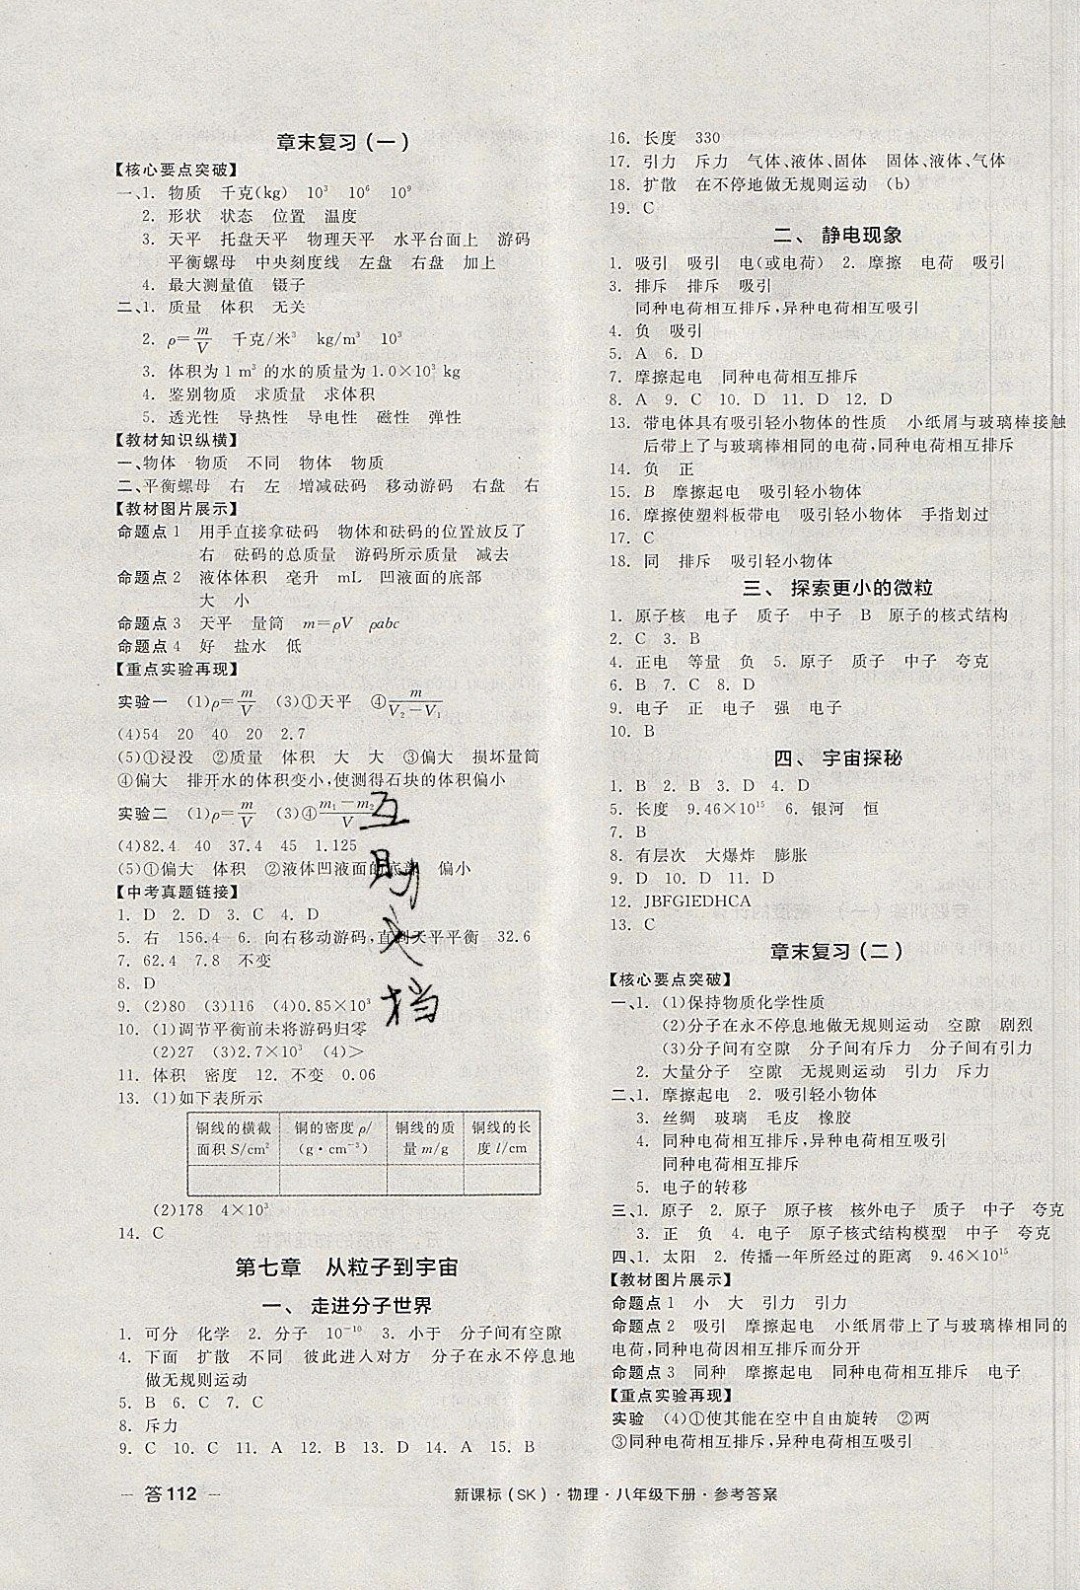 章末复习(一)
【核心要点突破】
一、1. 物质 千克(kg) 10³ 10⁶ 10⁹
2. 形状 状态 位置 温度
3. 天平 托盘天平 物理天平 水平台面上 游码
平衡螺母 中央刻度线 左盘 右盘 加上
4. 最大测量值 镊子
二、1. 质量 体积 无关
2. ρ=m/V 千克/米³ kg/m³ 10³
3. 体积为 1 m³ 的水的质量为 1.0×10³ kg
4. 鉴别物质 求质量 求体积
5. 透光性 导热性 导电性 磁性 弹性
【教材知识纵横】
一、物体 物质 不同 物体 物质
二、平衡螺母 右 左 增减砝码 移动游码 右盘 右
【教材图片展示】
命题点 1 用手直接拿砝码 物体和砝码的位置放反了
右 砝码的总质量 游码所示质量 减去
命题点 2 液体体积 毫升 mL 凹液面的底部
大 小
命题点 3 天平 量筒 m=ρV ρabc
命题点 4 好 盐水 低
【重点实验再现】
实验一 (1)ρ=m/V (3)①天平 ④m/(V₂-V₁)
(4)54 20 40 20 2.7
(5)①浸没 ②质量 体积 大 大 ③偏大 损坏量筒
④偏大 排开水的体积变小,使测得石块的体积偏小
实验二 (1)ρ=m/V (3)④(m₁-m₂)/V
(4)82.4 40 37.4 45 1.125
(5)①偏大 体积 ②液体凹液面的底部 偏小
【中考真题链接】
1. D 2. D 3. C 4. D
5. 右 156.4 6. 向右移动游码,直到天平平衡 32.6
7. 62.4 7.8 不变
8. D
9. (2)80 (3)116 (4)0.85×10³
10. (1)调节平衡前未将游码归零
(2)27 (3)2.7×10³ (4)>
11. 体积 密度 12. 不变 0.06
13. (1)如下表所示
铜线的横截面积 S/cm² 铜的密度 ρ/(g·cm⁻³) 铜线的质量 m/g 铜线的长度 l/cm
(2)178 4×10³
14. C
第七章 从粒子到宇宙
一、 走进分子世界
1. 可分 化学 2. 分子 10⁻¹⁰ 3. 小于 分子间有空隙
4. 下面 扩散 不同 彼此进入对方 分子在永不停息地
做无规则运动
5. B 6. C 7. C
8. 斥力
9. C 10. C 11. A 12. B 13. D 14. A 15. B
互助文档
16. 长度 330
17. 引力 斥力 气体、液体、固体 固体、液体、气体
18. 扩散 在不停地做无规则运动 (b)
19. C
二、 静电现象
1. 吸引 吸引 电(或电荷) 2. 摩擦 电荷 吸引
3. 排斥 排斥 吸引
同种电荷相互排斥,异种电荷相互吸引
4. 负 吸引
5. A 6. D
7. 摩擦起电 同种电荷相互排斥
8. A 9. C 10. D 11. D 12. D
13. 带电体具有吸引轻小物体的性质 小纸屑与玻璃棒接触
后带上了与玻璃棒相同的电荷,同种电荷相互排斥
14. 负 正
15. B 摩擦起电 吸引轻小物体
16. 摩擦使塑料板带电 吸引轻小物体 手指划过
17. C
18. 同 排斥 吸引轻小物体
三、 探索更小的微粒
1. 原子核 电子 质子 中子 B 原子的核式结构
2. C 3. B
4. 正电 等量 负 5. 原子 质子 中子 夸克
6. B 7. C 8. D
9. 电子 正 电子 强 电子
10. B
四、 宇宙探秘
1. B 2. B 3. D 4. D
5. 长度 9.46×10¹⁵ 6. 银河 恒
7. B
8. 有层次 大爆炸 膨胀
9. D 10. D 11. D
12. JBFGIEDHCA
13. C
章末复习(二)
【核心要点突破】
一、1. (1)保持物质化学性质
(2)分子在永不停息地做无规则运动 空隙 剧烈
(3)分子间有空隙 分子间有斥力 分子间有引力
2. 大量分子 空隙 无规则运动 引力 斥力
二、1. 摩擦起电 2. 吸引轻小物体
3. 丝绸 玻璃 毛皮 橡胶
4. 同种电荷相互排斥,异种电荷相互吸引
同种电荷相互排斥
5. 电子的转移
三、1. 原子 2. 原子 原子核 核外电子 质子 中子 夸克
3. 正 负 4. 电子 原子核式结构模型 中子 夸克
四、1. 太阳 2. 传播一年所经过的距离 9.46×10¹⁵
【教材图片展示】
命题点 1 小 大 引力 引力
命题点 2 吸引 摩擦起电 小纸屑带上了与玻璃棒相同的
电荷,同种电荷因相互排斥而分开
命题点 3 同种 摩擦起电 同种电荷相互排斥 电子
【重点实验再现】
实验 (4)①使其能在空中自由旋转 ②两
③同种电荷相互排斥,异种电荷相互吸引
答 112
新课标(SK)·物理·八年级下册·参考答案